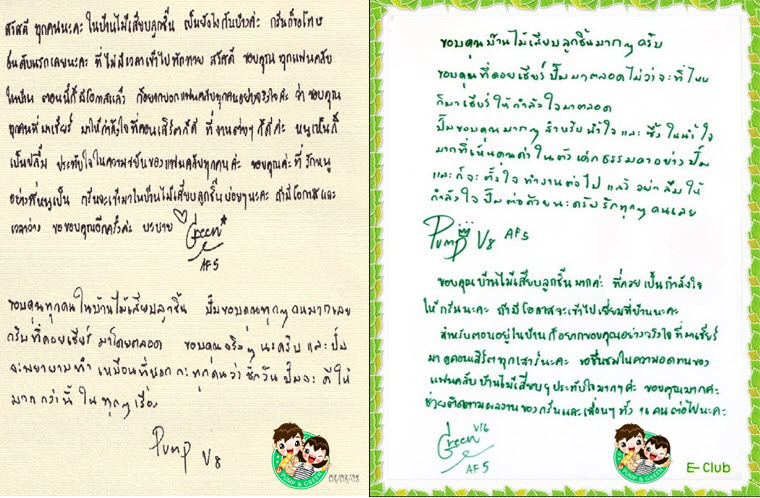 สวัสดี ทุกคนนะคะ ในบ้านไม้เสียบลูกชิ้น เป็นยังไงกันบ้างคะ กรีนก็ขอโทษ
นะคะ ที่ไม่มีเวลาเข้าไปทักทาย สวัสดี ขอบคุณ ทุกแฟนคลับ
ในบ้าน ตอนนี้ก็มีโอกาสแล้ว ก็อยากบอกแฟนคลับทุกคนอย่างจริงใจค่ะ ว่า ขอบคุณ
ทุกคนที่มาเชียร์ มาให้กำลังใจที่คอนเสิร์ตก็ดี ที่งานต่างๆ ก็ดีค่ะ หนูเป็นก็
เป็นปลื้ม ประทับใจในความขยันของแฟนคลับทุกคนค่ะ ขอบคุณค่ะ ที่รักหนู
อย่างที่หนูเป็น กรีนจะเข้ามาในบ้านไม้เสียบลูกชิ้นบ่อยๆนะคะ ถ้ามีโอกาสและ
เวลาว่าง ขอขอบคุณอีกครั้งค่ะ บะบาย
Green
AF5
ขอบคุณทุกคนในบ้านไม้เสียบลูกชิ้น ปั๊มขอบคุณทุกๆคนมากเลย
ครับที่คอยเชียร์ มาโดยตลอด ขอบคุณจริงๆนะครับ และปั๊ม
จะพยายามทำ เหมือนที่บอก ทุกคนว่า ซักวัน ปั๊มจะ ดีให้
มากกว่านี้ ในทุกๆเรื่อง
Pump V8
PUMP & GREEN
08/08/08
ขอบคุณบ้านไม้เสียบลูกชิ้นมากๆครับ
ขอบคุณที่คอยเชียร์ ปั๊มมาตลอดไม่ว่าจะที่ไหน
ก็มาเชียร์ให้กำลังใจมาตลอด
ปั๊มขอบคุณมากๆสำหรับน้ำใจ และ ซึ้งในน้ำใจ
มากที่เห็นคุณค่าในตัวเด็กธรรมดาอย่าง ปั๊ม
และก็จะ ตั้งใจ ทำงานต่อไป แล้ว อย่าลืมให้
กำลังใจ ปั๊ม ต่อด้วยนะครับ รักทุกๆ คนเลย
Pump V8 AF5
ขอบคุณบ้านไม้เสียบลูกชิ้นมากค่ะ ที่คอยเป็นกำลังใจ
ให้กรีนนะคะ ถ้ามีโอกาสจะเข้าไปเยี่ยมที่บ้านนะคะ
สำหรับตอนอยู่ในบ้านก็อยากขอบคุณอย่างจริงใจ ที่มาเชียร์
มาดูคอนเสิร์ตทุกเสาร์นะคะ ขอชื่นชมในความอดทนของ
แฟนคลับบ้านไม้เสียบฯ ประทับใจมากๆค่ะ ขอบคุณมากค่ะ
ช่วยติดตามผลงานของกรีนและเพื่อนๆทั้ง 16 คนต่อไปนะคะ
Green V16
AF5
PUMP & GREEN
E-Club